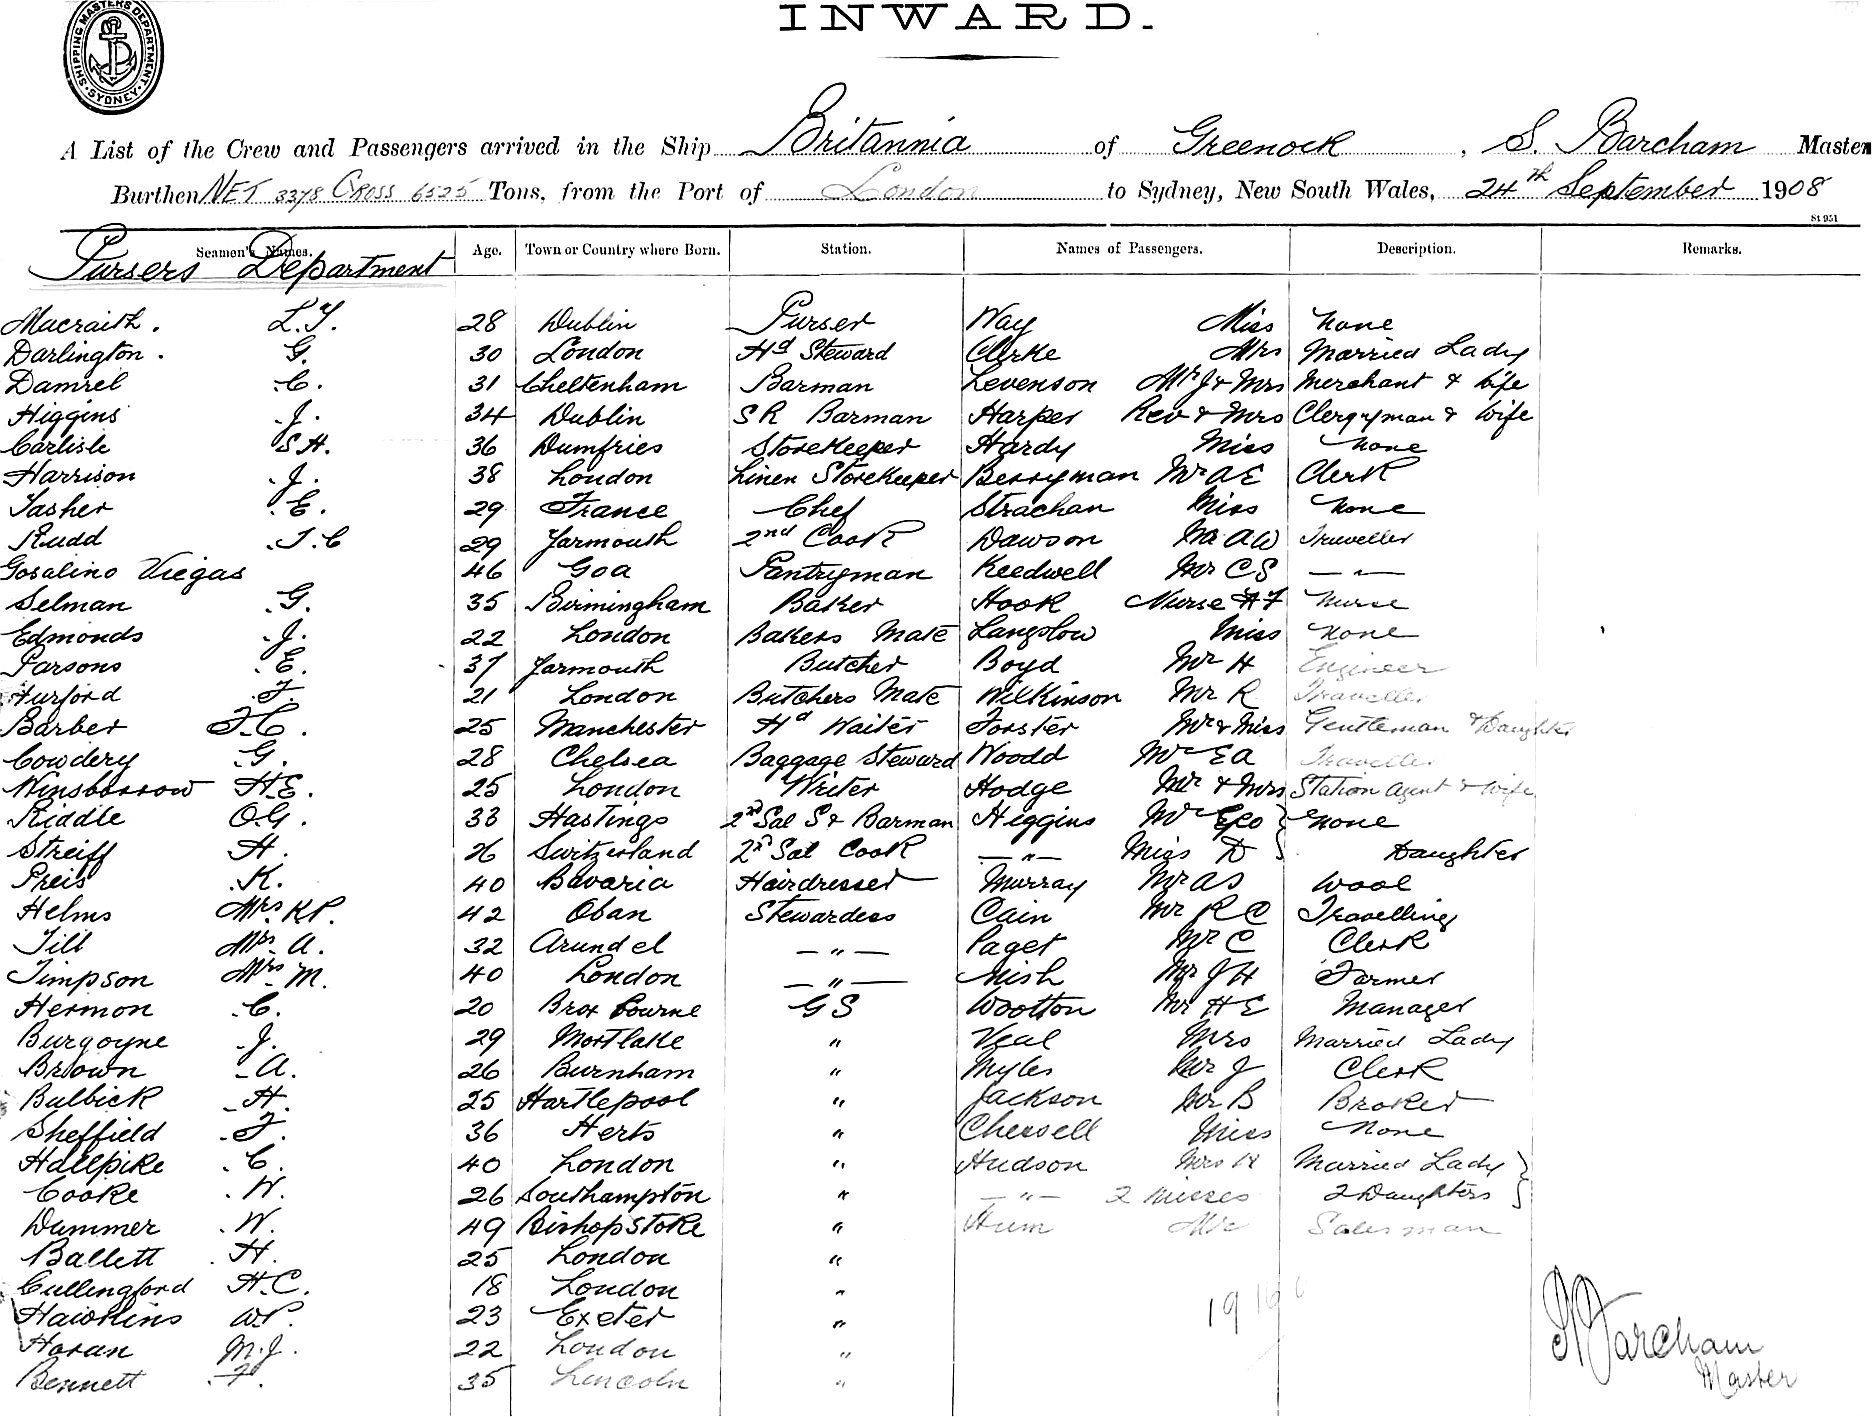 SHIPPING MASTERS DEPARTMENT
SYDNEY
INWARD.
A List of the Crew and Passengers arrived in the Ship Britannia of Greenock, S. Barcham Master
Burthen NET 3378 GROSS 6525 Tons, from the Port of London to Sydney, New South Wales, 24th September 1908
St 951
Seamen's Names. Age. Town or Country where Born. Station. Names of Passengers. Description. Remarks.
Pursers Department
Macraith. L.T. 28 Dublin Purser Way Miss None
Darlington. G. 30 London Hd Steward Clerke Mrs Married Lady
Damrel C. 31 Cheltenham Barman Levenson Mr J & Mrs Merchant & Wife
Higgins J. 34 Dublin SR Barman Harper Rev & Mrs Clergyman & Wife
Carlisle S.H. 36 Dumfries Storekeeper Hardy Miss None
Harrison J. 38 London Linen Storekeeper Berryman Mr A E Clerk
Tasher E. 29 France Chef Strachan Miss None
Rudd T.C 29 Yarmouth 2nd Cook Dawson Mr A W Traveller
Gosalino Viegas 46 Goa Pantryman Keedwell Mr C S — " —
Selman G. 35 Birmingham Baker Hook Nurse H F Nurse
Edmonds J. 22 London Bakers Mate Langslow Miss None
Parsons E. 37 Yarmouth Butcher Boyd Mr H Engineer
Hurford F 21 London Butchers Mate Wilkinson Mr R Traveller
Barber F.C. 25 Manchester Hd Waiter Forster Mr & Miss Gentleman & Daughter
Cowdery G. 28 Chelsea Baggage Steward Woodd Mr E A Traveller
Winsborrow H.E. 25 London Writer Hodge Mr & Mrs Station Agent & Wife
Riddle O.G. 33 Hastings 2nd Sal S & Barman Higgins Mr Geo None
Streiff H. 26 Switzerland 2nd Sal Cook — " — Miss D Daughter
Preis K. 40 Bavaria Hairdresser Murray Mr A S Wool
Helms Mrs K.P. 42 Oban Stewardess Cain Mr R C Travelling
Till Mrs A. 32 Arundel — " — Paget Mr C Clerk
Timpson Mrs M. 40 London — " — Nish Mr J H Farmer
Hermon C. 20 Brox bourne G S Wootton Mr H E Manager
Burgoyne J. 29 Mortlake " Veal Mrs Married Lady
Brown A. 26 Burnham " Myles Mr J Clerk
Bulbick H. 25 Hartlepool " Jackson Mr B Broker
Sheffield F. 36 Herts " Chessell Miss None
Hallpike C. 40 London " Hudson Mrs H Married Lady
Cooke W. 26 Southampton " — " — 2 Misses 2 Daughters
Dummer W. 49 Bishopstoke " Hum Mr Salesman
Ballett H. 25 London "
Cullingford H.C. 18 London "
Hawkins W.P. 23 Exeter "
Horan M.J. 22 London "
Bennett F. 35 Lincoln "
Barcham
Master